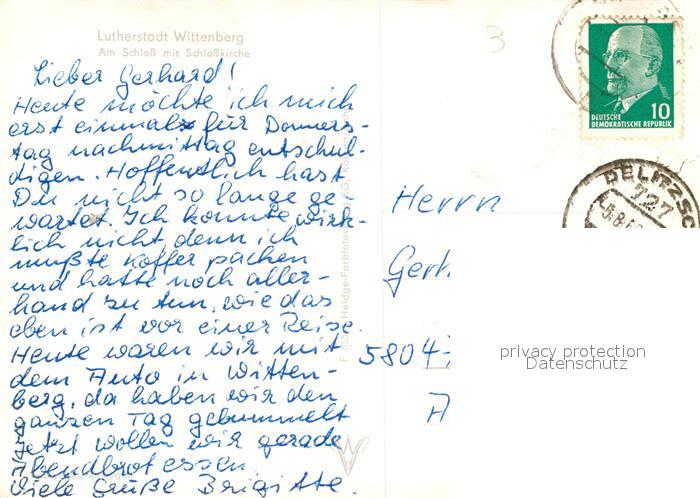 Lutherstadt Wittenberg
Am Schloß mit Schloßkirche
3
Lieber Gerhard!
Heute möchte ich mich
erst einmal für Donners-
tag nachmittag entschul-
digen. Hoffentlich hast
Du nicht so lange ge-
wartet. Ich konnte wirk-
lich nicht, denn ich
mußte Koffer packen
und hatte noch aller-
hand zu tun, wie das
eben ist vor einer Reise.
Heute waren wir mit
dem Auto in Witten-
berg, da haben wir den
ganzen Tag gebummelt
Jetzt wollen wir gerade
Abendbrot essen.
Viele Grüße Brigitte.
10
DEUTSCHE
DEMOKRATISCHE REPUBLIK
DELITZSC
727
-5.8.6
Herrn
Gerh
5804-
A
privacy protection
Datenschutz